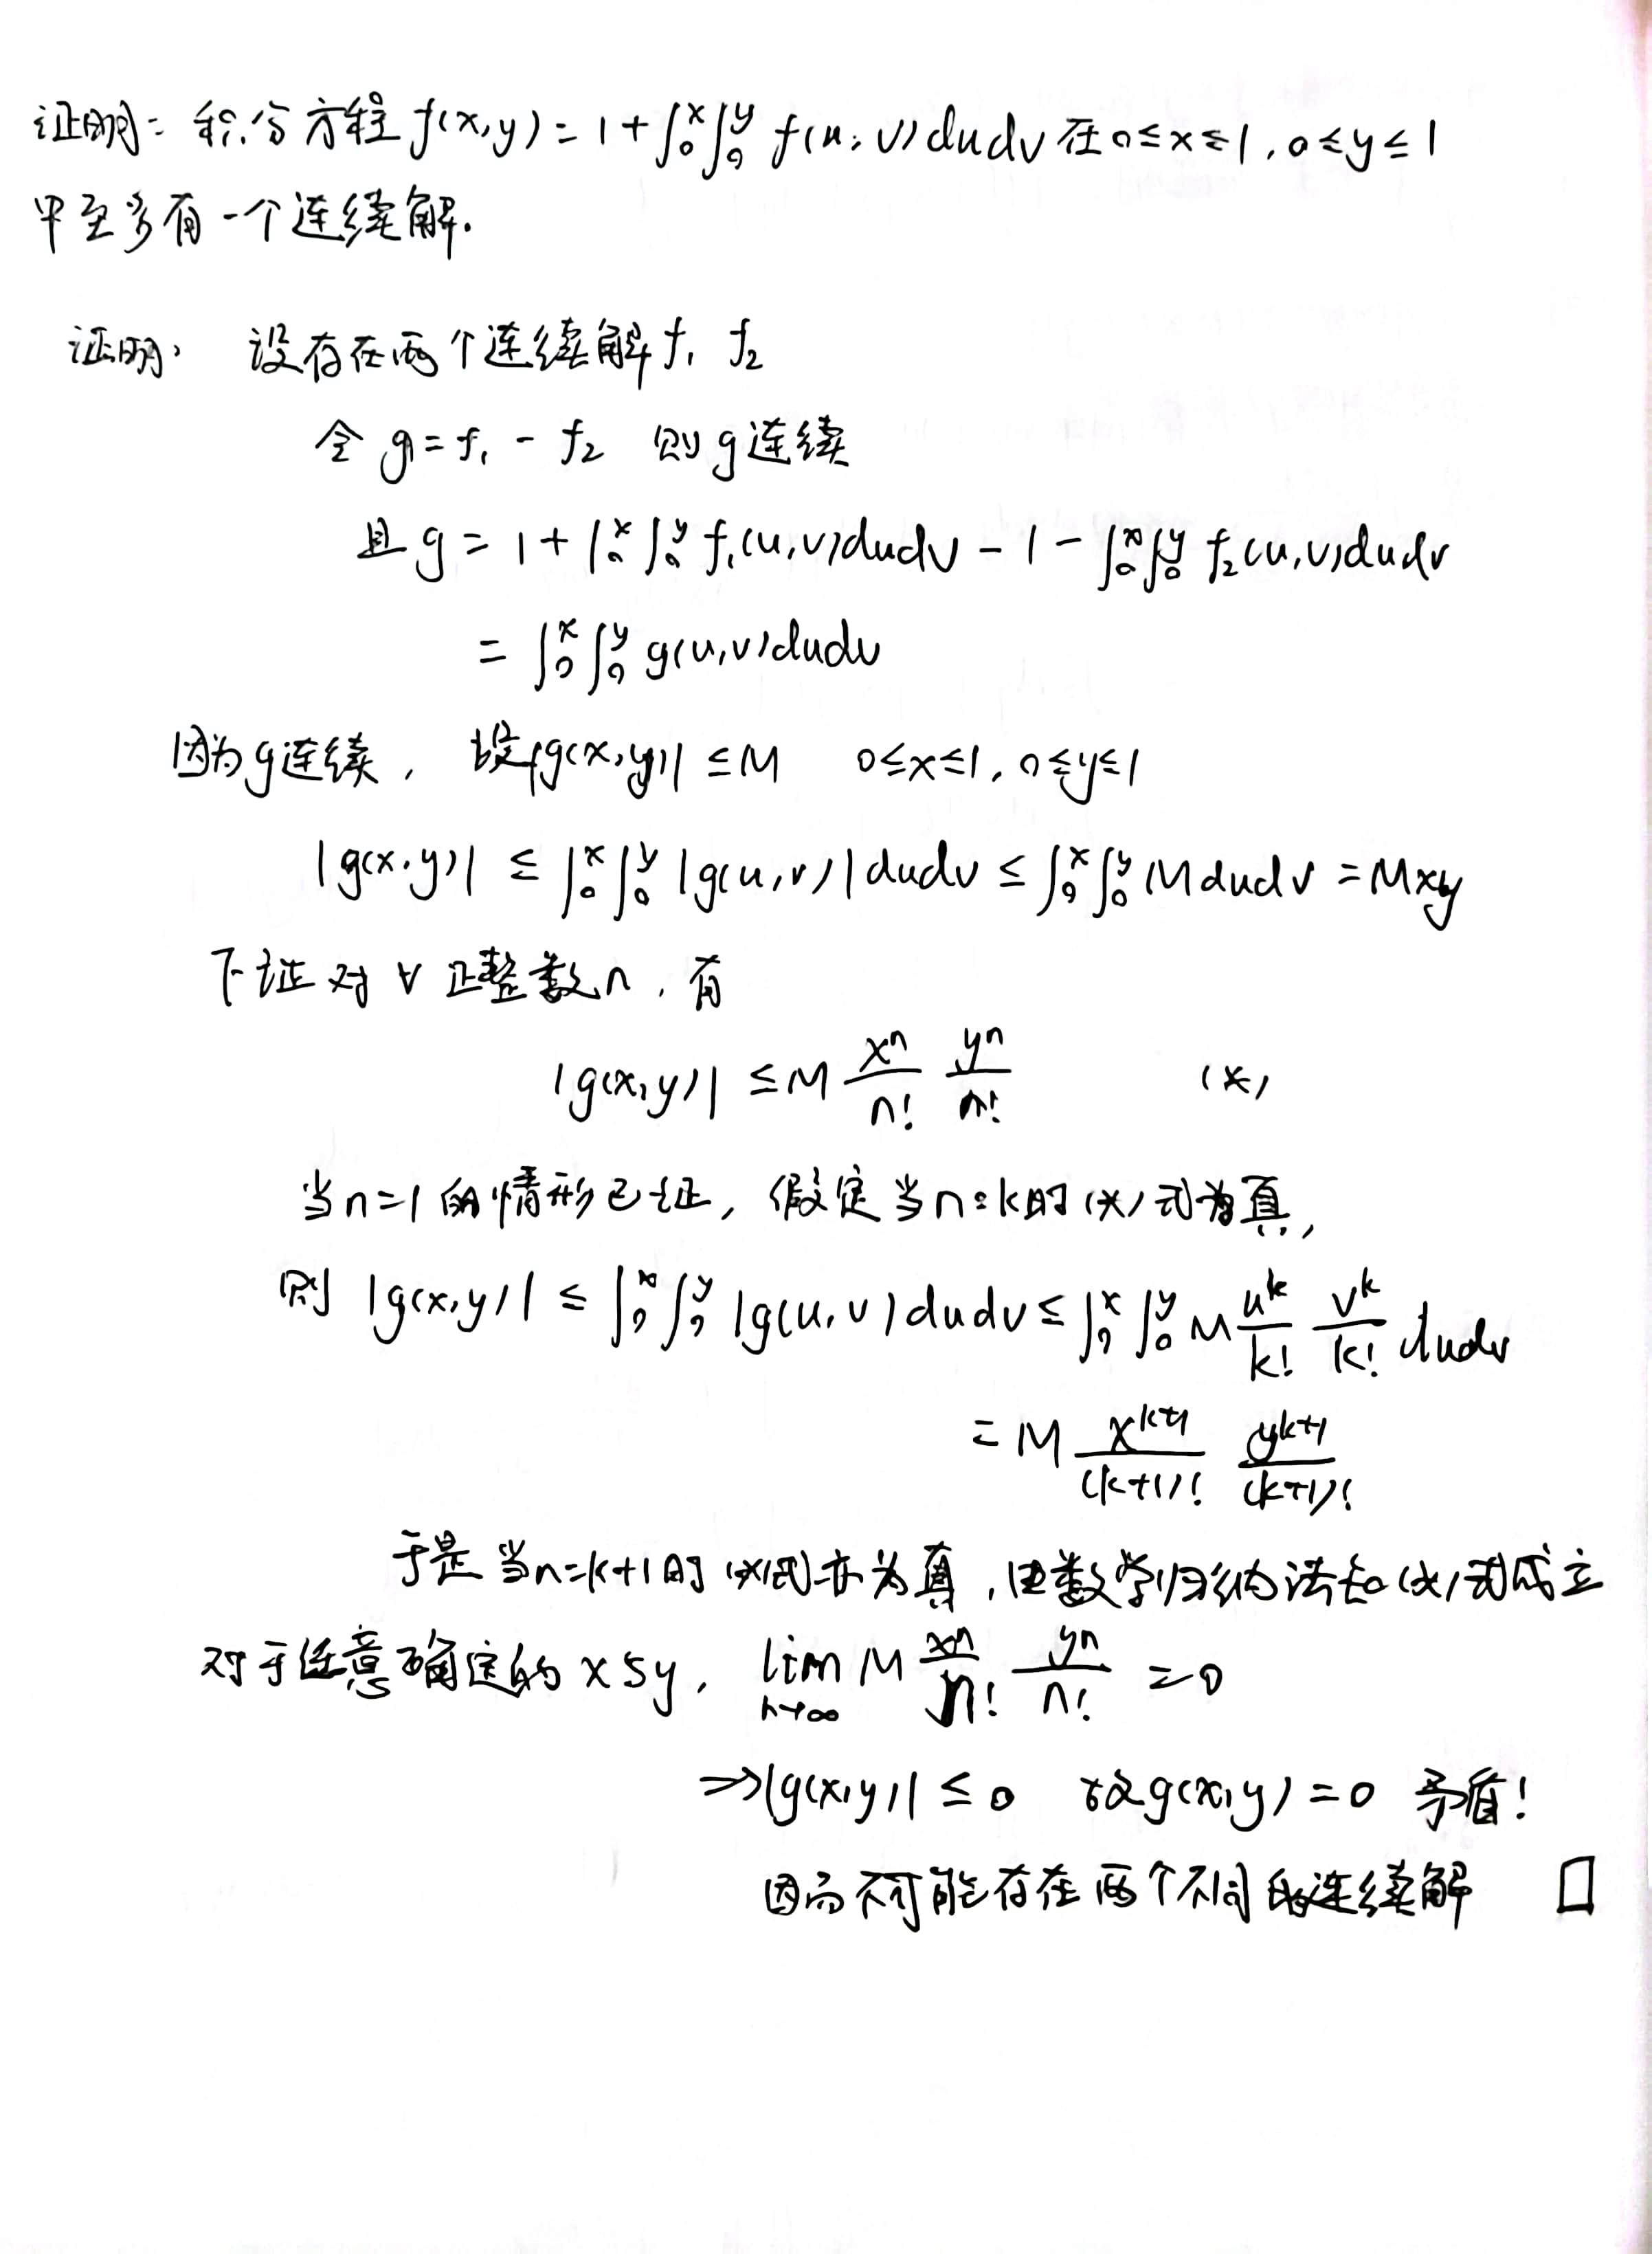 证明：积分方程 f(x,y)=1+∫₀ˣ∫₀ʸ f(u,v)dudv 在 0≤x≤1,0≤y≤1
中至多有一个连续解.
证明： 设存在两个连续解 f₁ f₂
令 g=f₁-f₂ 则g连续
且 g = 1+∫₀ˣ∫₀ʸ f₁(u,v)dudv - 1 - ∫₀ˣ∫₀ʸ f₂(u,v)dudv
= ∫₀ˣ∫₀ʸ g(u,v)dudv
因为g连续, 设|g(x,y)| ≤M 0≤x≤1,0≤y≤1
|g(x,y)| ≤ ∫₀ˣ∫₀ʸ |g(u,v)|dudv ≤ ∫₀ˣ∫₀ʸ Mdudv =Mxy
下证对∀正整数n,有
|g(x,y)| ≤M xⁿ/n! yⁿ/n! (*)
当n=1的情形已证, 假定当n=k时(*)式为真,
则 |g(x,y)| ≤ ∫₀ˣ∫₀ʸ |g(u,v)dudv ≤ ∫₀ˣ∫₀ʸ M uᵏ/k! vᵏ/k! dudv
= M xᵏ⁺¹/(k+1)! yᵏ⁺¹/(k+1)!
于是当n=k+1时(*)式亦为真,由数学归纳法知(*)式成立
对于任意确定的x与y, lim n→∞ M xⁿ/n! yⁿ/n! =0
⇒|g(x,y)| ≤ 0 故g(x,y)=0 矛盾!
因而不可能存在两个不同的连续解 □